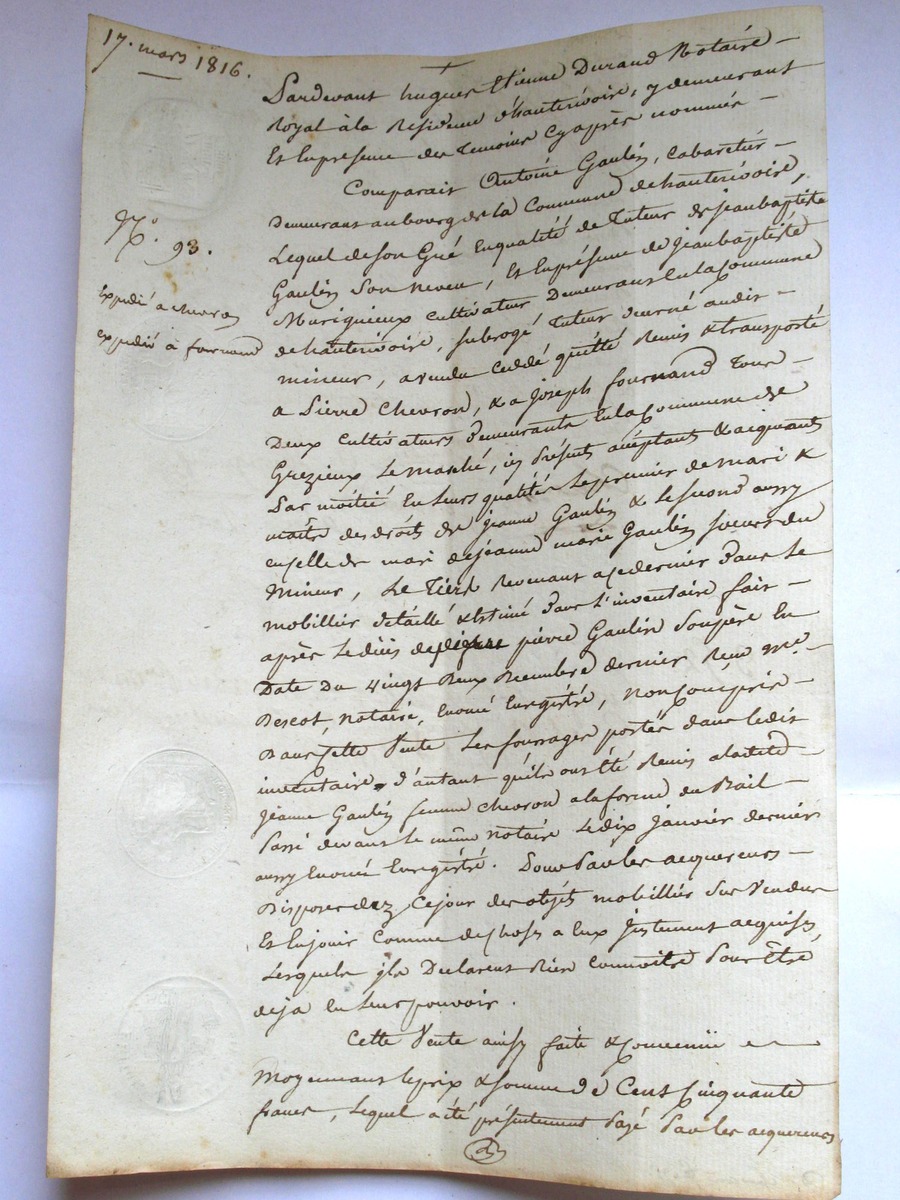 17. mars 1816.
Pardevant hugues Etienne Durand Notaire
Royal à la Residence d'hauterivoire, y demeurant
Et En présence des Temoins Cy après nommés
Comparait Antoine Gaulin, Cabaretier
Demeurant au bourg de la Commune de hauterivoire,
Lequel de son Gré En qualité de Tuteur de jean baptiste
Gaulin Son neveu, Et En présence de jean baptiste
Muriguieux Cultivateur Demeurant En la Commune
de hauterivoire, subrogé Tuteur decerné audit
mineur, a vendu Ceddé quitté Remis & transporté
a Pierre Chevron, & a joseph fournand Tous
Deux Cultivateurs Demeurants En la Commune de
Grezieux Le marché, icy Présents acceptants & acquerants
Par moitié En leurs qualités Le premier de mari &
maitre des droits de jeanne Gaulin & Le second aussy
en celle de mari de jeanne marie Gaulin soeurs du
Mineur, Le Tiers Revenant a ce dernier Dans Le
mobillier detaillé & Estimé Dans L'inventaire fait
après Le décès de pierre Gaulin Son père En
Date du Vingt Deux Decembre dernier Reçu Me
Descot, Notaire, Enoncé Enregistré, Non Compris
Dans Cette Vente Les fourrages portés dans ledit
inventaire, d'autant qu'ils ont Eté Remis a ladite
jeanne Gaulin femme Chevron a la forme du Bail
Passé devant le même Notaire Le dix janvier dernier
aussy Enoncé Enregistré. Dont Par les acquereurs
Disposer dez Ce jour des objets mobilliér Sus Vendus
Et En jouir Comme de choses a Eux justement acquises,
Lesquels ils Declarent Bien Connoitre Pour être
deja En leur pouvoir.
Cette Vente ainsy faite & Convenüe
Moyennant le prix & somme de Cent Cinquante
francs, Lequel a été présentement Payé Par les acquereurs
No. 93.
Expedié a chevron
expedié à fournand